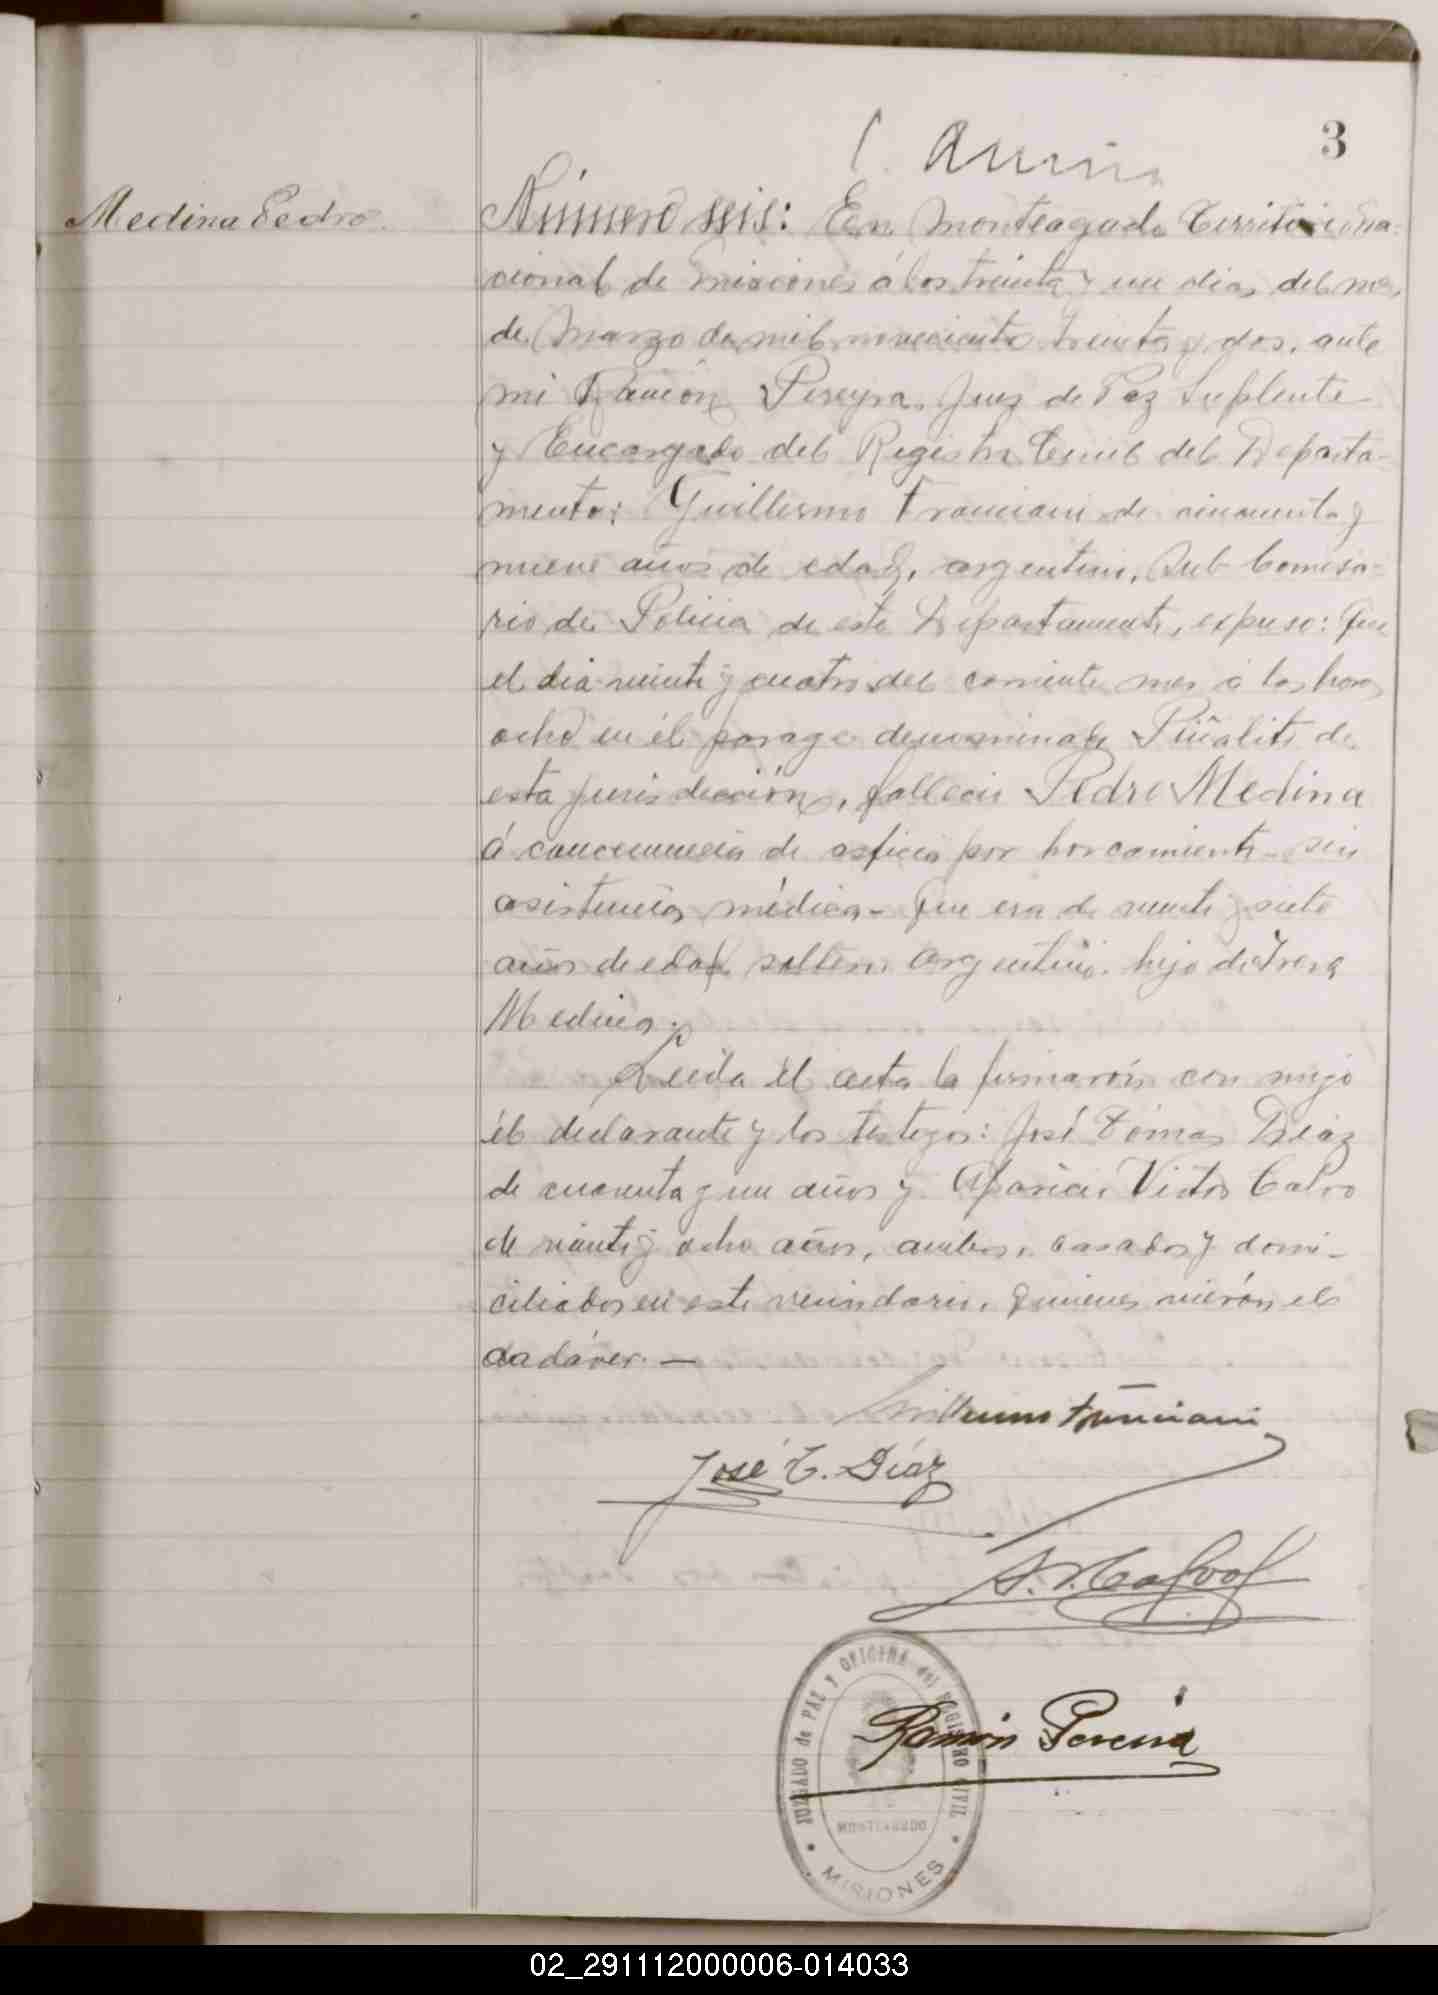 3
Medina Pedro.
Número seis: En Monteagudo Territorio Na-
cional de Misiones á los treinta y un dias del mes
de Marzo de mil novecientos treinta y dos, ante
mi Ramón Pereyra, Juez de Paz Suplente
y Encargado del Registro Civil del Departa-
mento: Guillermo Franciani de cincuenta y
nueve años de edad, argentino, Sub Comisa-
rio de Policia de este Departamento, expuso: Que
el dia veinte y cuatro del corriente mes á las horas
ocho en él parage denominado Piñalito de
esta jurisdicción, falleció Pedro Medina
á consecuencia de asficia por horcamiento sin
asistencia médica- Que era de veinte y siete
años de edad soltero argentino. hijo de
Medina.
Leida el acta la firmarón con migo
él declarante y los testigos: José Tómas Diaz
de cuarenta y un años y Aparicio Victor Calvo
de veinte y ocho años, ambos, casados y domi-
ciliados en este vecindario, quienes vierón el
cadáver. —
Guillermo Franciani
José T. Díaz
A. V. Calvo
JUZGADO de PAZ y OFICINA del REGISTRO CIVIL
Ramón Pereira
MONTEAGUDO
MISIONES
02_291112000006-014033